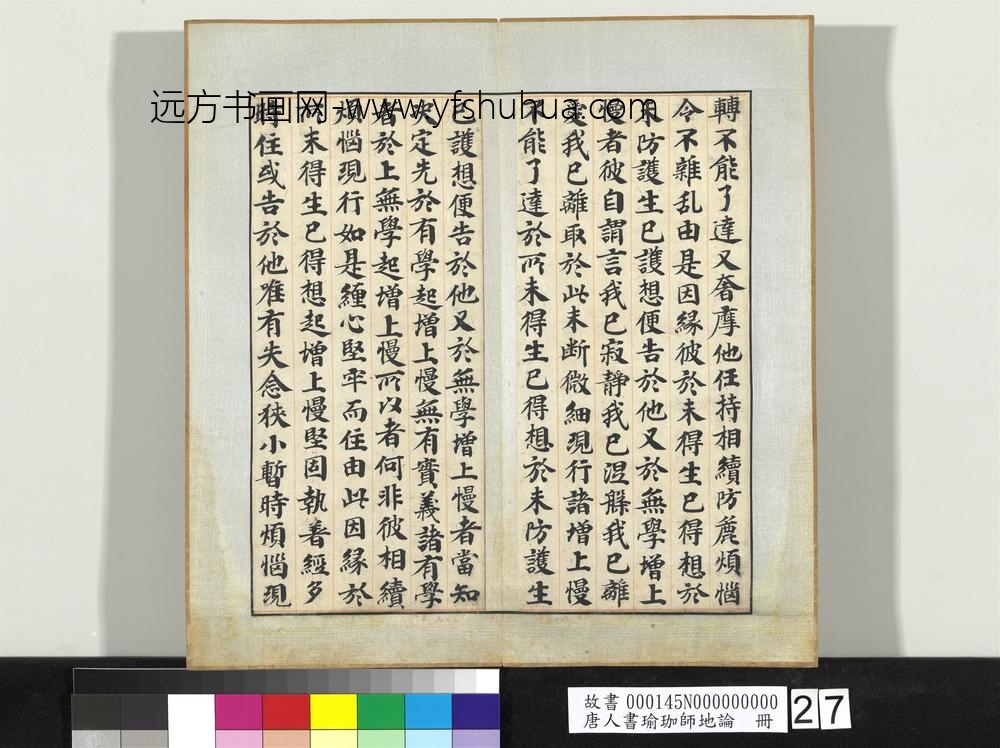 轉不能了達又奢摩他任持相續防麁煩惱
令不雜乱由是因緣彼於未得生已得想於
未防護生已護想便告於他又於無學增上
慢者彼自謂言我已寂靜我已涅槃我已離
愛我已離取於此未断微細現行諸增上慢
不能了達於所未得生已得想於未防護生
已護想便告於他又於無學增上慢者當知
決定先於有學起增上慢無有實義諸有學
者於上無學起增上慢所以者何非彼相續
煩惱現行如是纏心堅牢而住由此因緣於
所未得生已得想起增上慢堅固執著經多
時住或告於他唯有失念狹小暫時煩惱現
远方书画网-www.yfshuhua.com
故書 000145N000000000
唐人書瑜珈師地論 冊
27